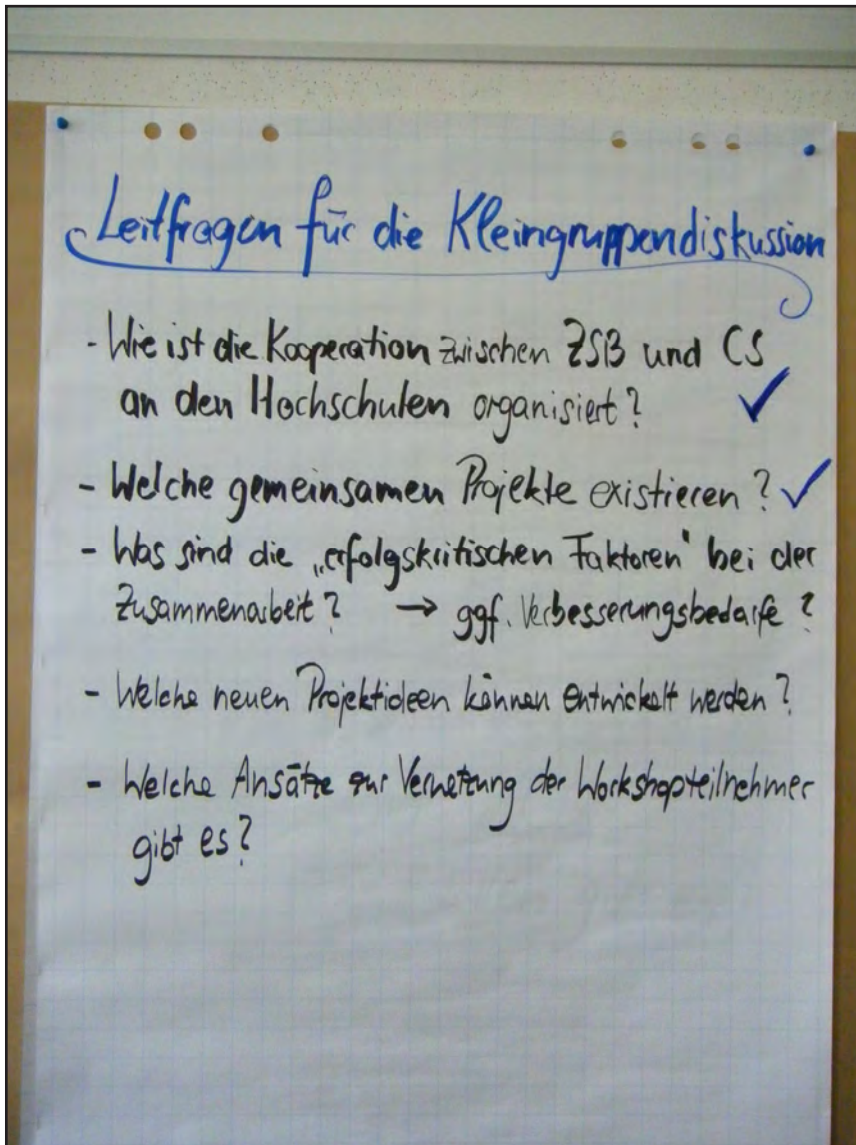 Leitfragen für die Kleingruppendiskussion
- Wie ist die Kooperation zwischen ZSB und CS
an den Hochschulen organisiert? ✓
- Welche gemeinsamen Projekte existieren? ✓
- Was sind die „erfolgskritischen Faktoren" bei der
Zusammenarbeit? → ggf. Verbesserungsbedarfe?
- Welche neuen Projektideen können entwickelt werden?
- Welche Ansätze zur Vernetzung der Workshopteilnehmer
gibt es?